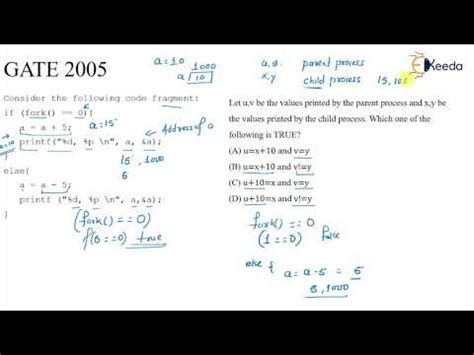 GATE 2005
a=10
1000
a 10
u,v. parent process
x,y child process 15, 100
Keeda
Consider the following code fragment:
if (fork() == 0){
a = a + 5; a=15 Address of a
printf("%d, %p \n", a, &a);
15, 1000
}
else{
a = a - 5;
printf ("%d, %p \n", a,&a);
}
(fork() == 0)
if(0 == 0) true
Let u,v be the values printed by the parent process and x,y be
the values printed by the child process. Which one of the
following is TRUE?
(A) u=x+10 and v=y
(B) u=x+10 and v!=y
(C) u+10=x and v=y
(D) u+10=x and v!=y
fork() == 0
(1 == 0) false
else { a = a-5 = 5
5, 1000